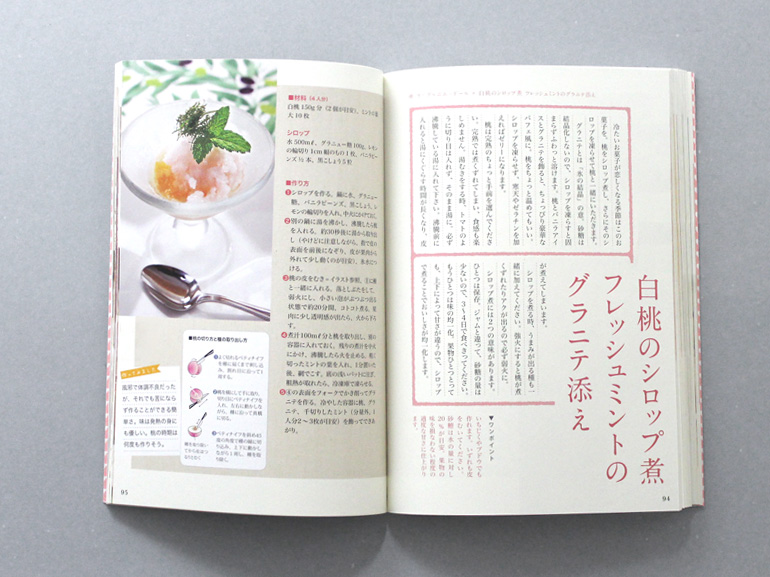 白桃のシロップ煮
フレッシュミントの
グラニテ添え
冷たいお菓子が恋しくなる季節はこのお
菓子を。桃をシロップ煮し、さらにそのシ
ロップを凍らせて桃と一緒にいただきます。
グラニテとは「氷の結晶」の意。砂糖は
結晶化しないので、シロップを凍らすと固
まらずふわっと溶けます。桃とバニラアイ
スとグラニテを飾ると、ちょっぴり豪華な
パフェ風に。桃をちょっと温めてもいい。
シロップを凍らせず、寒天やゼラチンを加
えればゼリーになります。
桃は完熟のちょっと手前を選んでくださ
い。完熟では煮くずれてしまい、食感も楽
しめません。湯むきをする時、トマトのよ
うに切り目は入れず、そのまま湯に。必ず
沸騰している湯に入れて下さい。沸騰前に
入れると湯にくぐらす時間が長くなり、皮
が煮えてしまいます。
シロップを煮る時、うまみが出る種も一
緒に加えてください。強火にすると桃が煮
くずれたりアクが出るので必ず弱火に。
シロップ煮には2つの意味があります。
ひとつは保存。ジャムと違って、砂糖の量は
少ないので、3〜4日で食べきってください。
もうひとつは味の均一化。果物ひとつとって
も、上下によって甘さが違うので、シロップ
で煮ることでおいしさが均一化します。
▼ワンポイント
いちじくやブドウでも
作れます。いずれも皮
をむいてください。
砂糖は水の量に対し
20%が目安。果物の
味を損なわない程度の
適度な甘さに仕上がり
ます。
94
■材料（4人分）
白桃150g分（2個が目安）、ミントの葉
大10枚
シロップ
水500mℓ、グラニュー糖100g、レモン
の輪切り1cm幅のもの1枚、バニラビー
ンズ½本、黒こしょう5粒
■作り方
❶シロップを作る。鍋に水、グラニュー
糖、バニラビーンズ、黒こしょう、レ
モンの輪切りを入れ、中火にかけておく。
❷別の鍋に湯を沸かし、沸騰したら桃
を入れる。約30秒後に湯から取り出
し（やけどに注意しながら、指で皮の
表面を前後になぞり、皮が果肉から
外れて少し動くのが目安）、氷水につ
ける。
❸桃の皮をむき→イラスト参照、①に種
と一緒に入れる。落としぶたをして、
弱火にし、小さい泡がぷつぷつ出る
状態で約20分間、コトコト煮る。果
肉に少し透明感が出たら、火から下ろ
す。
❹煮汁100mℓ分と桃を取り出し、別
の容器に入れておく。残りの煮汁を中火
にかけ、沸騰したら火を止める。軽く
切ったミントの葉を入れ、1分置いた
後、網でこす。底の浅いバットに注ぎ、
粗熱が取れたら、冷凍庫で凍らせる。
❺④の表面をフォークでかき削ってグラ
ニテを作る。冷やした容器に桃、グラ
ニテ、手切りしたミント（分量外。1
人分2〜3枚が目安）を飾ってできあ
がり。
作ってみました
風邪で体調不良だった
が、それでも苦になら
ず作ることができる簡
単さ。味は発熱の身に
も優しい。桃の時期は
何度も作りそう。
■桃の切り方と種の取り出し方
95